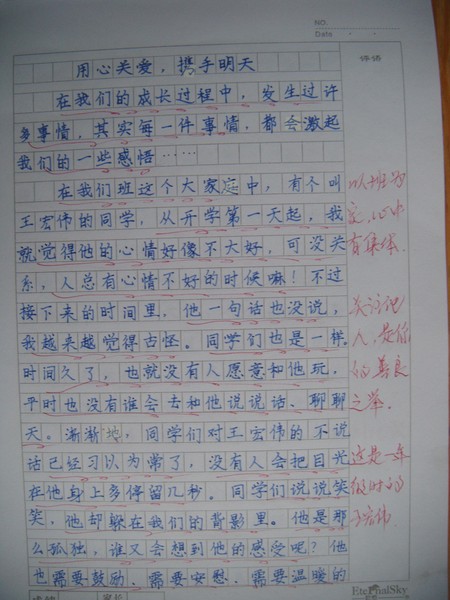 NO.
Date
评语
用心关爱，携手明天
在我们的成长过程中，发生过许
多事情，其实每一件事情，都会激起
我们的一些感悟……
在我们班这个大家庭中，有个叫
王宏伟的同学，从开学第一天起，我
就觉得他的心情好像不大好，可没关
系，人总有心情不好的时候嘛！不过
接下来的时间里，他一句话也没说，
我越来越觉得古怪。同学们也是一样，
时间久了，也就没有人愿意和他玩，
平时也没有谁会去和他说说话、聊聊
天。渐渐地，同学们对王宏伟的不说
话已经习以为常了，没有人会把目光
在他身上多停留几秒。同学们说说笑
笑，他却躲在我们的背影里。他是那
么孤独，谁又会想到他的感受呢？他
也需要鼓励、需要安慰、需要温暖的
以班为
家，心中
有集体.
关注他
人，是你
的善良
之举.
这是一年
级时的
王宏伟.
EternalSky